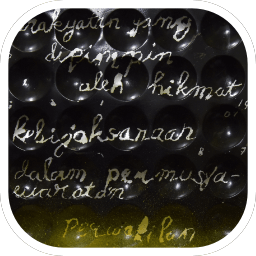 rakyatan yang
dipimpin
oleh hikmat
kebijaksanaan
dalam permusya-
waratan
Perwakilan